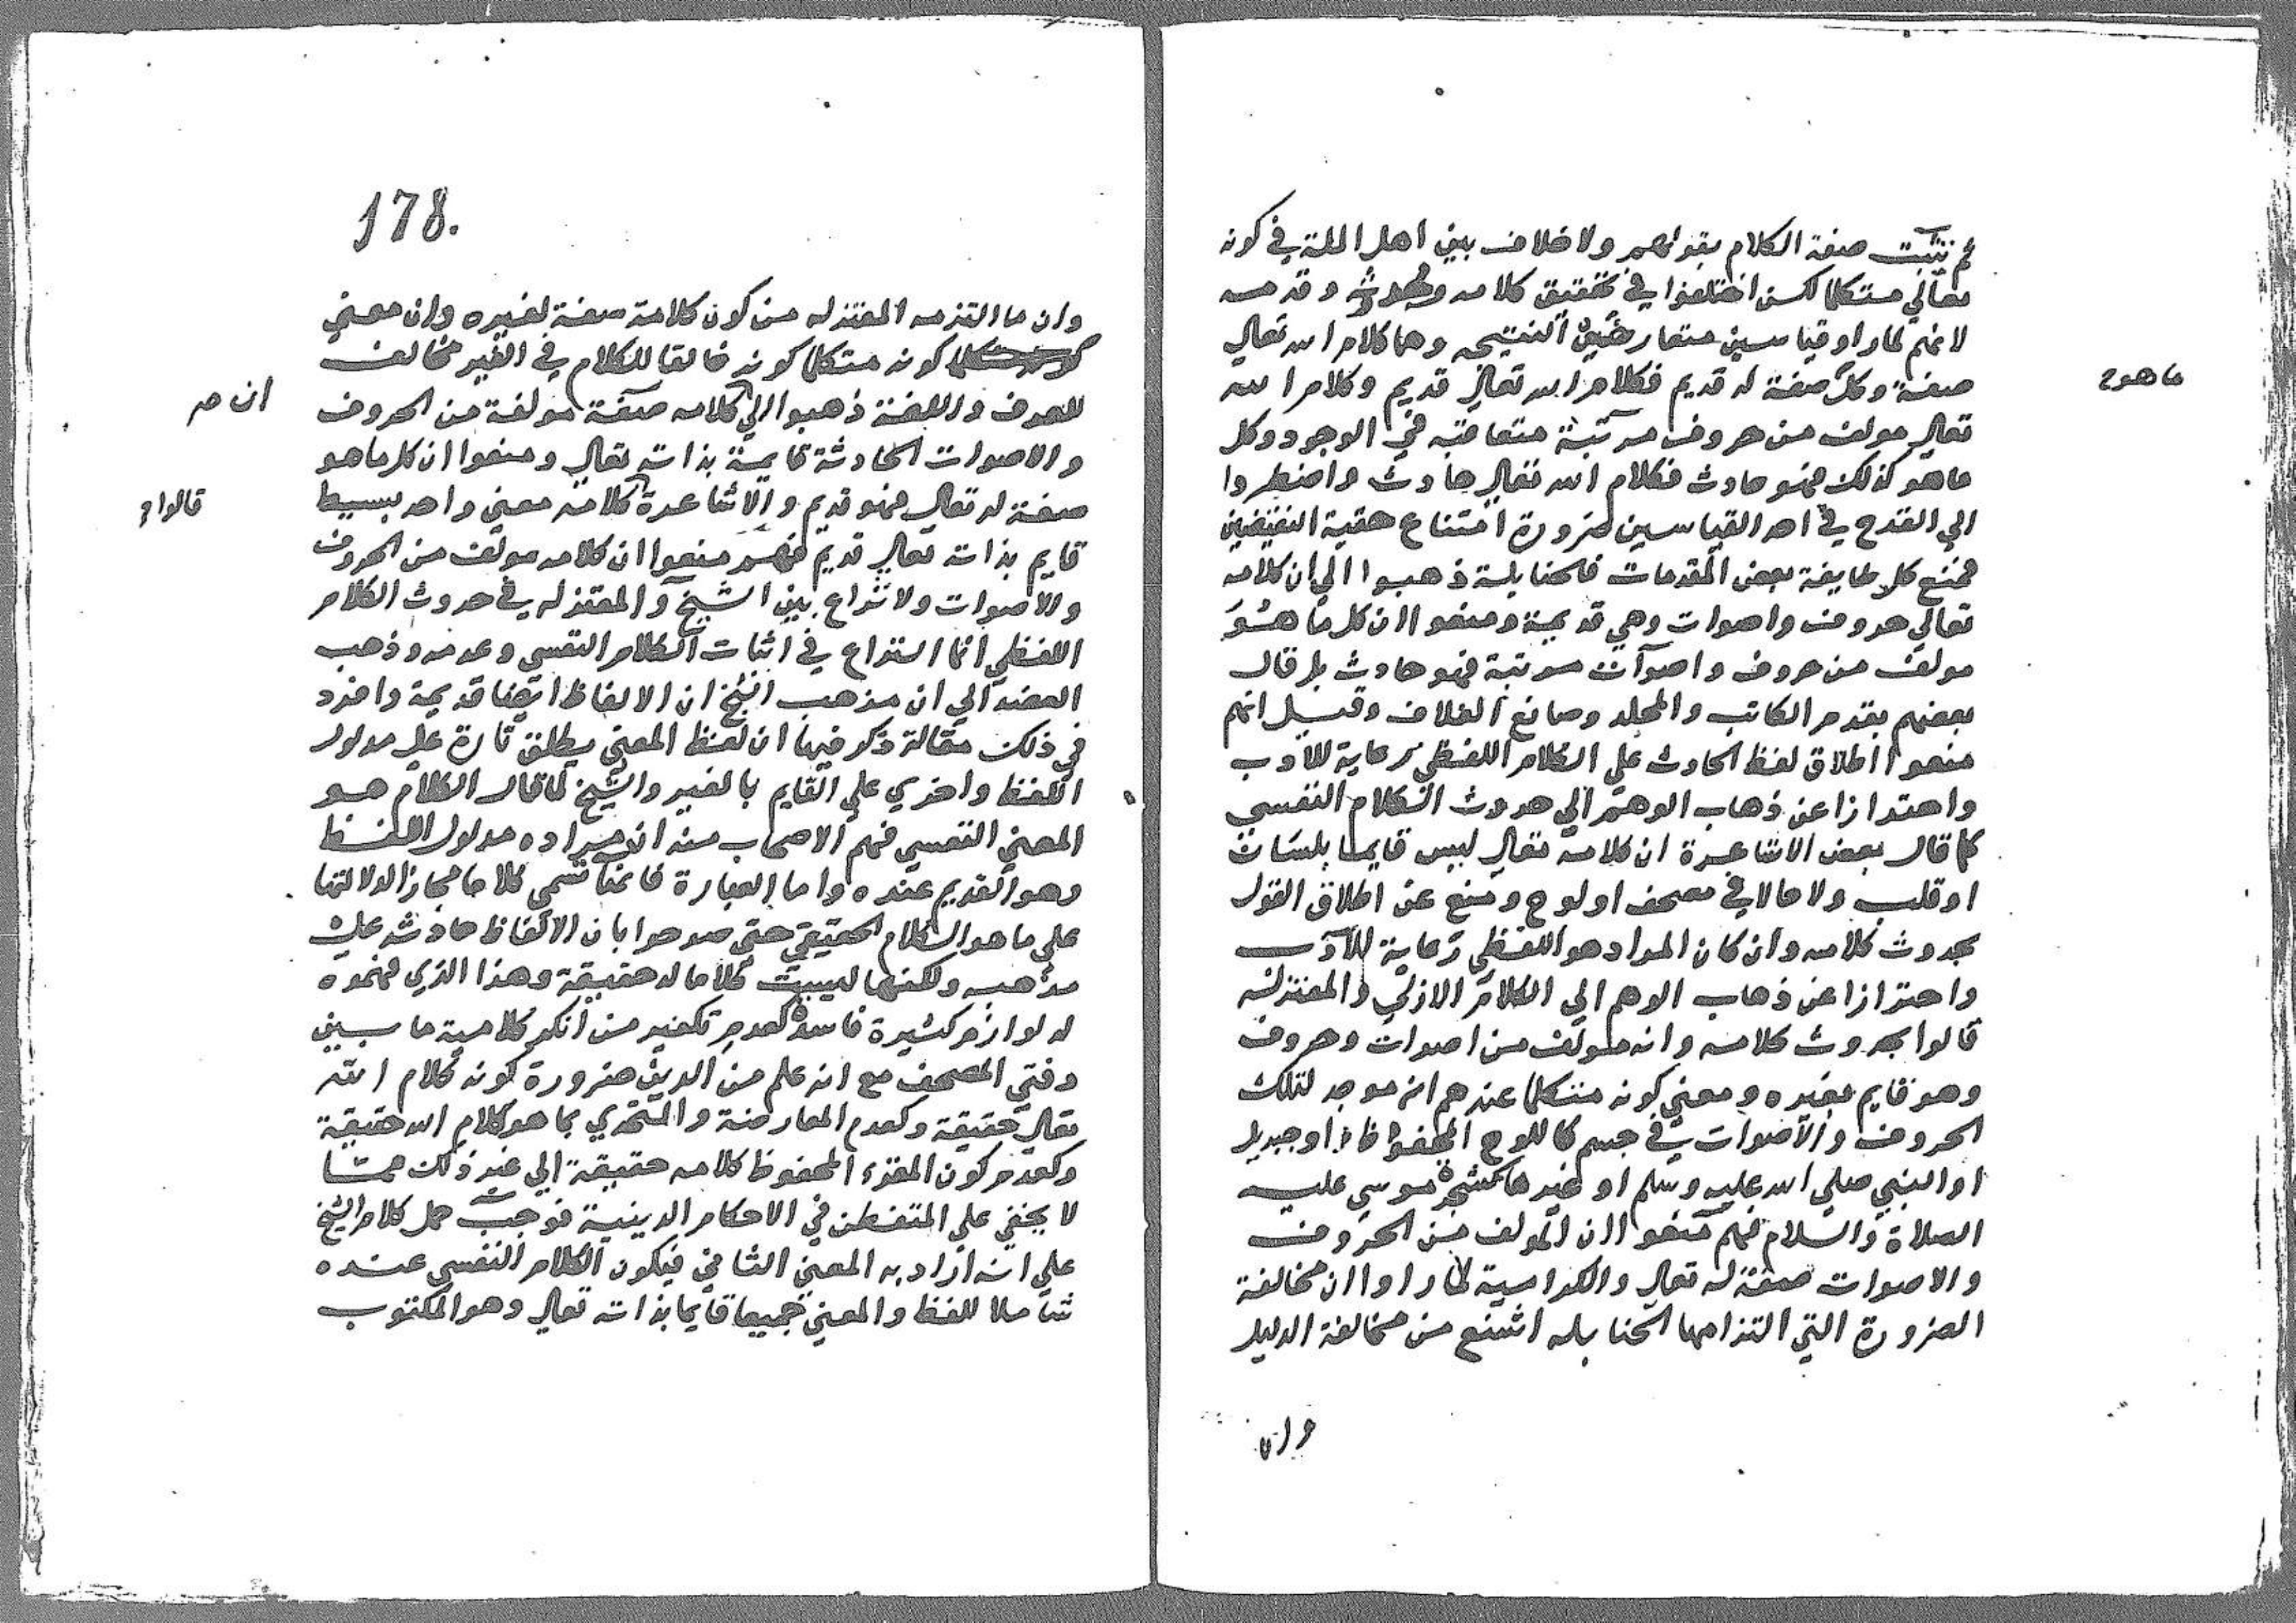 ثم نثبت صفة الكلام بقولهم ولا خلاف بين اهل الملة في كونه
تعالي متكلما لكن اختلفوا في تحقيق كلامه وحدوثه وقدمه
لانهم لما راوا قياسين متعارضين النتيجه وهما كلام الله تعالي
صفة وكل صفة له قديم فكلام الله تعالي قديم وكلام الله
ما هو ح
تعالي مولف من حروف مرتبة متعاقبه في الوجود وكل
ما هو كذلك فهو حادث فكلام الله تعالي حادث واضطروا
الي القدح في احد القياسين ضرورة امتناع حقية النقيضين
فمنع كل طايفة بعض المقدمات فالحنابلة ذهبوا الي ان كلامه
تعالي حروف واصوات وهي قديمة ومنعوا ان كل ما هو
مولف من حروف واصوات مرتبة فهو حادث بل قال
بعضهم بقدم الكاتب والمجلد وصانع الغلاف وقيل انهم
منعوا اطلاق لفظ الحادث علي الكلام اللفظي رعاية للادب
واحترازا عن ذهاب الوهم الي حدوث الكلام النفسي
كما قال بعض الاشاعرة ان كلامه تعالي ليس قايما بلسان
او قلب ولا حالا في مصحف او لوح ومنع عن اطلاق القول
بحدوث كلامه وان كان المراد هو اللفظي رعاية للادب
واحترازا عن ذهاب الوهم الي الكلام الازلي والمعتزله
قالوا بحدوث كلامه وانه مولف من اصوات وحروف
وهو قايم بغيره ومعني كونه متكلما عندهم انه موجد لتلك
الحروف والاصوات في جسم كاللوح المحفوظ او جبريل
او النبي صلي الله عليه وسلم او غيرها كشجرة موسي عليه
الصلاة والسلام فهم منعوا ان المولف من الحروف
والاصوات صفة له تعالي والكرامية لما راوا ان مخالفة
الضرورة التي التزامها الحنابله اشنع من مخالفة الدليل
وان
178.
وان ما التزمه المعتزله من كون كلامه صفة لغيره وان معني
كونه متكلما كونه خالقا للكلام في الغير مخالف
للعرف واللغة ذهبوا الي كلامه صفة مولفة من الحروف
ان صـ
والاصوات الحادثة قايمة بذاته تعالي ومنعوا ان كل ما هو
صفة له تعالي فهو قديم والاشاعرة كلامه معني واحد بسيط
قالوا
قايم بذاته تعالي قديم فهم منعوا ان كلامه مولف من الحروف
والاصوات ولا نزاع بين الشيخ والمعتزله في حدوث الكلام
اللفظي انما النزاع في اثبات الكلام النفسي وعدمه وذهب
العضد الي ان مذهب الشيخ ان الالفاظ ايضا قديمة وافرد
في ذلك مقالة ذكر فيها ان لفظ المعني يطلق تارة علي مدلول
اللفظ واخري علي القايم بالغير والشيخ لما قال الكلام هو
المعني النفسي فهم الاصحاب منه ان مراده مدلول اللفظ
وهو القديم عنده واما العبارة فانما تسمي كلاما مجازا لدلالتها
علي ما هو الكلام الحقيقي حتي صرحوا بان الالفاظ حادثة علي
مذهبه ولكنها ليست كلاما له حقيقة وهذا الذي فهموه
له لوازم كثيرة فاسدة كعدم تكفير من انكر كلامية ما بين
دفتي المصحف مع انه علم من الدين ضرورة كونه كلام الله
تعالي حقيقة وكعدم المعارضة والتحدي بما هو كلام الله حقيقة
وكعدم كون المقروء المحفوظ كلامه حقيقة الي غير ذلك مما
لا يخفي علي المتفطن في الاحكام الدينية فوجب حمل كلام الشيخ
علي انه اراد به المعني الثاني فيكون الكلام النفسي عنده
شاملا للفظ والمعني جميعا قايما بذاته تعالي وهو المكتوب